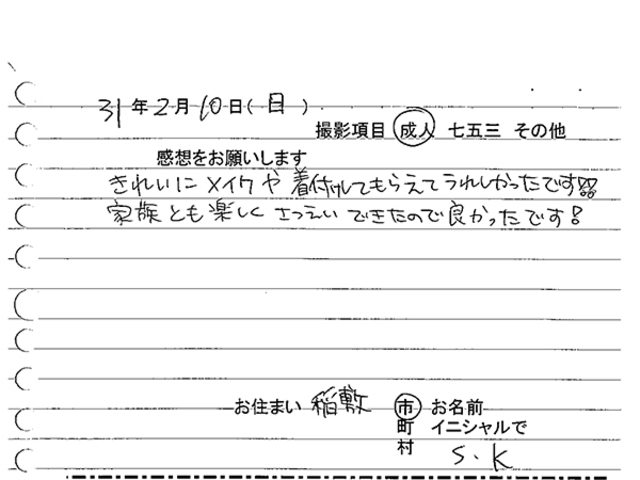 31年2月10日(日)
撮影項目 成人 七五三 その他
感想をお願いします
きれいにメイクや着付けしてもらえてうれしかったです!!
家族とも楽しくさつえいできたので良かったです!
お住まい 稲敷 市 お名前
町 イニシャルで
村 S.K